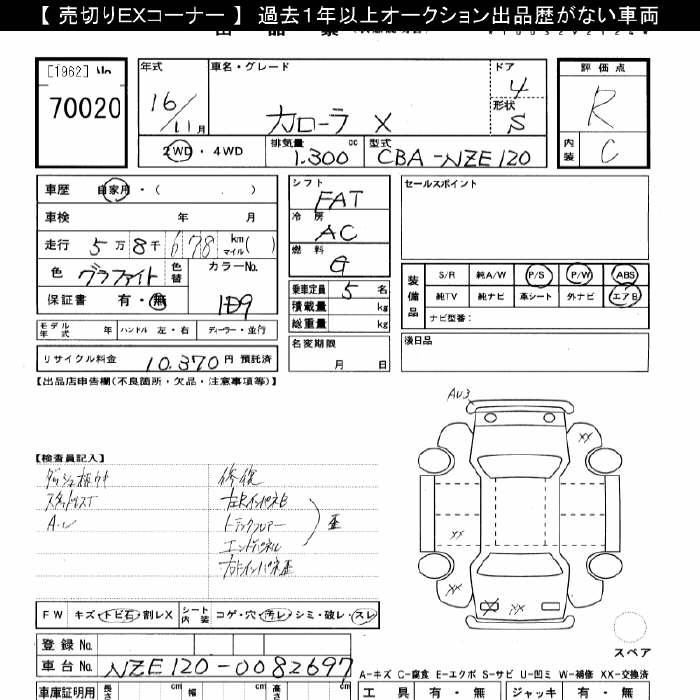 【 売切りEXコーナー 】 過去1年以上オークション出品歴がない車両
[1962] No
70020
年式
16/11月
車名・グレード
カローラ X
ドア
4
形状
S
評価点
R
内装
C
2WD・4WD
排気量
1.300 cc
型式
CBA-NZE120
車歴 自家用・( . )
車検 年 月
走行 5万8千678 km マイル( )
色 グラファイト 色替
カラーNo.
1D9
保証書 有・無
モデル年式 年 ハンドル 左・右 ディーラー・並行
リサイクル料金 10,370円 預託済
シフト
FAT
冷房
AC
燃料
G
乗車定員 5 名
積載量 kg
総重量 kg
名変期限
月 日
セールスポイント
装備品
S/R 純A/W P/S P/W ABS
純TV 純ナビ 革シート 外ナビ エアB
ナビ型番:
後日品
【出品店申告欄(不良箇所・欠品・注意事項等)】
【検査員記入】
修復
トランクフロアー
エンドパネル
歪
AU3
XX
XX
XX
XX
スペア
FW キズ・トビ石・割レX シート内装 コゲ・穴・汚レ・シミ・破レ・スレ
登録No.
車台No. NZE120-0082697
A-キズ C-腐食 E-エクボ S-サビ U-凹ミ W-補修 XX-交換済
車庫証明用 長さ cm 幅 cm 高さ cm
工具 有・無 ジャッキ 有・無